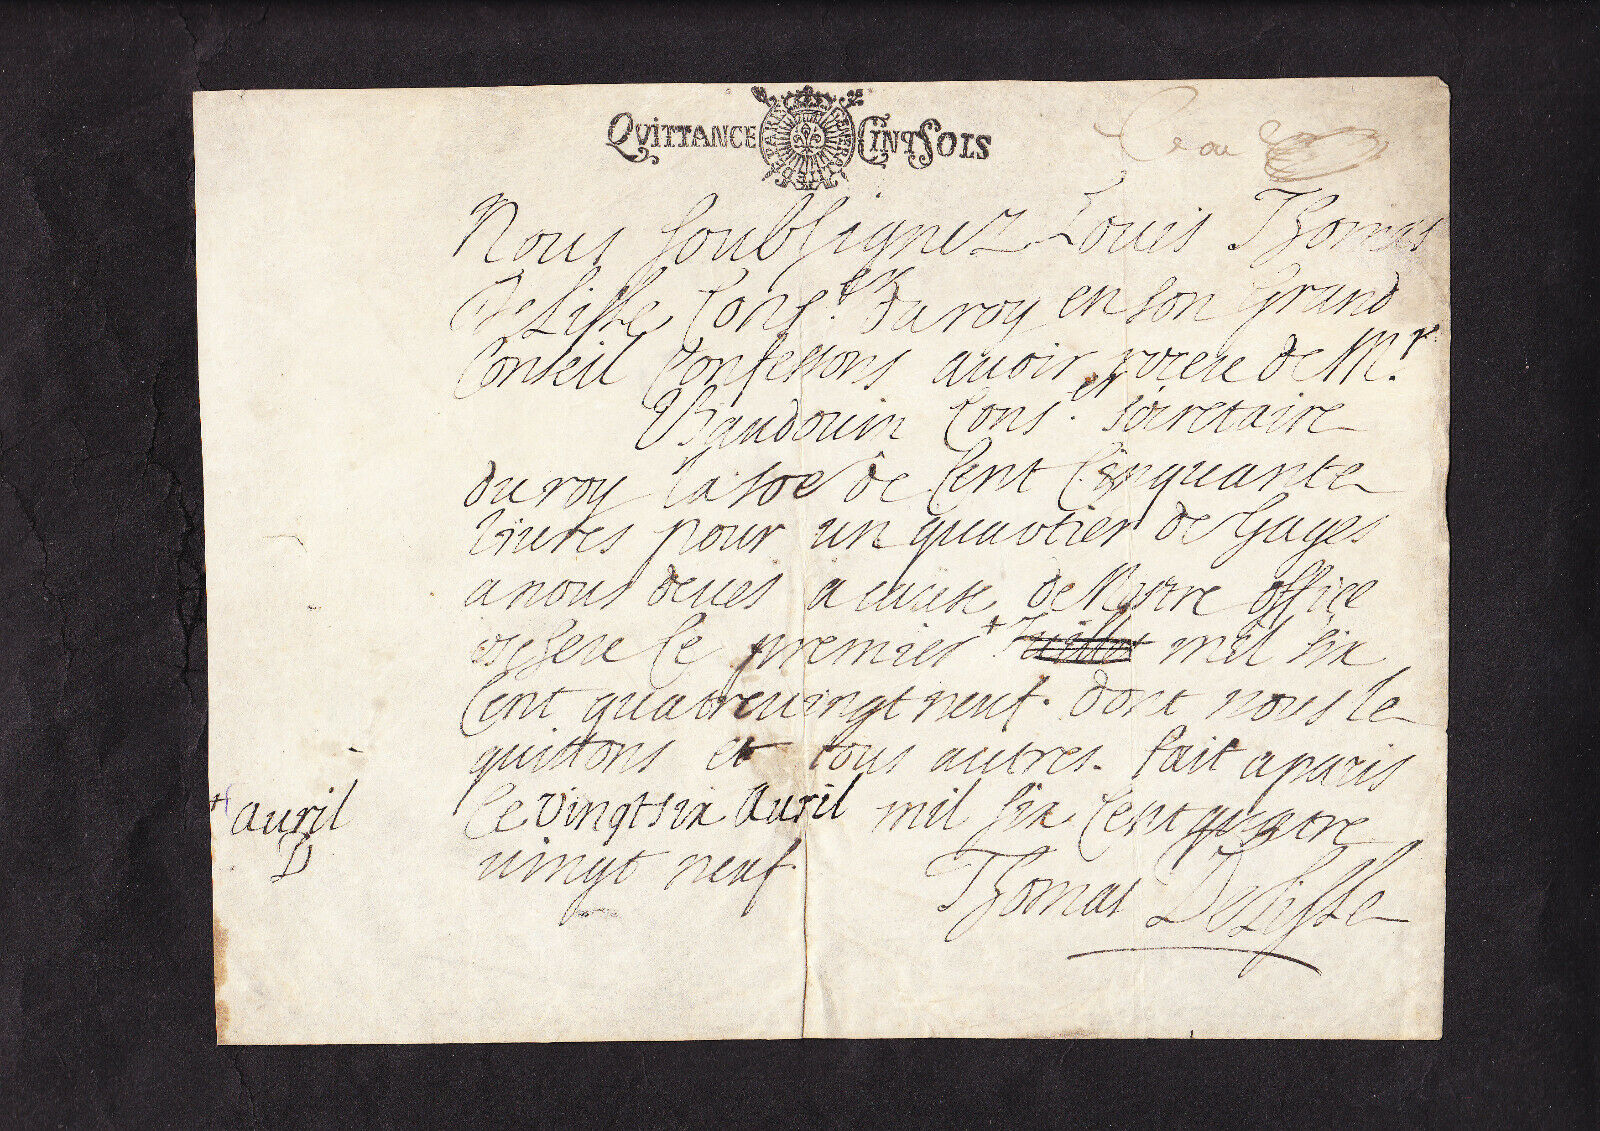 QVITTANCE CINTSOLS
GENERALITE DE PARIS
Nous soubsignez Louis Thomas
DeLisle Cons.er du roy en son grand
Conseil Confessons auoir receu de M.r
Baudouin Cons.er secretaire
du roy la soe de Cent Cinquante
liures pour un quartier de Gages
a nous deues a cause de Nostre office
le premier + Juillet mil six
Cent quatreuingt neuf. dont nous le
quittons et tous autres. fait a paris
+ auril
Le vingt six Auril mil six Cent quatre
uingt neuf
Thomas DeLisle